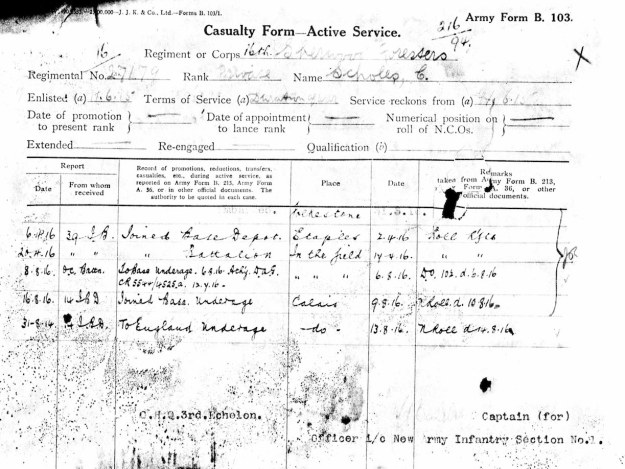 J. J. K. & Co., Ltd.—Forms B. 103/1.
Army Form B. 103.
Casualty Form—Active Service.
216
94
16 Regiment or Corps 16th Foresters
Regimental No. Rank Name Scholes, C.
Enlisted (a) Terms of Service (a) Service reckons from (a)
Date of promotion to present rank
Date of appointment to lance rank
Numerical position on roll of N.C.Os.
Extended Re-engaged Qualification (b)
Report
Date
From whom received
Record of promotions, reductions, transfers, casualties, etc., during active service, as reported on Army Form B. 213, Army Form A. 36, or in other official documents. The authority to be quoted in each case.
Place
Date
Remarks
taken from Army Form B. 213, Form A. 36, or other official documents.
Folkestone
6.4.16 39 I.B. Joined Base Depot. Etaples 2.4.16 Roll
20.4.16 " " " Battalion In the field 14.4.16 " "
8.8.16 O.C. Battn. To Base underage. " " " 6.8.16 d. 6.8.16
16.8.16 14 I.B.D. Joined Base. Underage Calais 9.8.16 N Roll d. 10.8.16
31-8-14 14 I.B.D. To England Underage -do- 13.8.16 N Roll d 14.8.16
G.H.Q. 3rd. Echelon.
Captain (for)
Officer i/c New Army Infantry Section No.1.